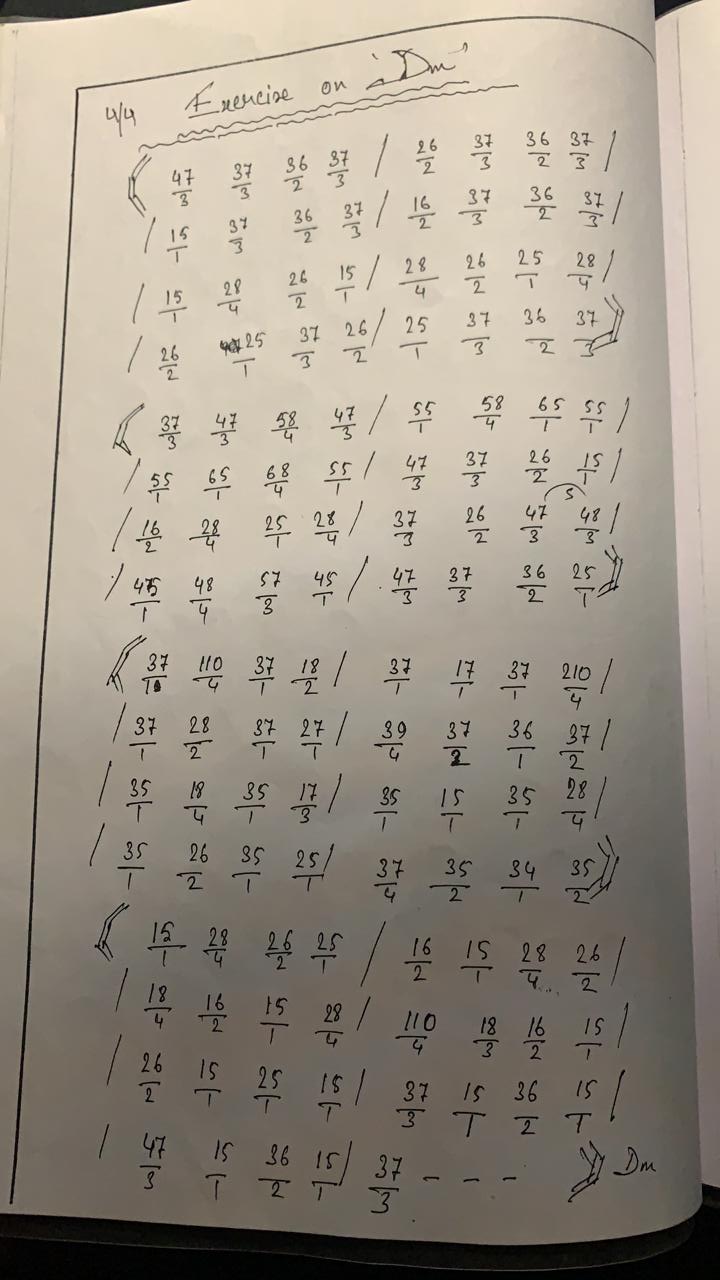 4/4 Exercise on 'Dm'
47/3 37/3 36/2 37/3 / 26/2 37/3 36/2 37/3 /
/ 15/1 37/3 36/2 37/3 / 16/2 37/3 36/2 37/3 /
/ 15/1 28/4 26/2 15/1 / 28/4 26/2 25/1 28/4 /
/ 26/2 25/1 37/3 26/2 / 25/1 37/3 36/2 37/3
37/3 47/3 58/4 47/3 / 55/1 58/4 65/1 55/1 /
/ 55/1 65/1 68/4 55/1 / 47/3 37/3 26/2 15/1 /
S
/ 16/2 28/4 25/1 28/4 / 37/3 26/2 47/3 48/3 /
/ 45/1 48/4 57/3 45/1 / 47/3 37/3 36/2 25/1
37/1 110/4 37/1 18/2 / 37/1 17/1 37/1 210/4 /
/ 37/1 28/2 37/1 27/1 / 39/4 37/2 36/1 37/2 /
/ 35/1 18/4 35/1 17/3 / 35/1 15/1 35/1 28/4 /
/ 35/1 26/2 35/1 25/1 / 37/4 35/2 34/1 35/2
15/1 28/4 26/2 25/1 / 16/2 15/1 28/4 26/2 /
/ 18/4 16/2 15/1 28/4 / 110/4 18/3 16/2 15/1 /
/ 26/2 15/1 25/1 15/1 / 37/3 15/1 36/2 15/1 /
/ 47/3 15/1 36/2 15/1 / 37/3 - - - Dm